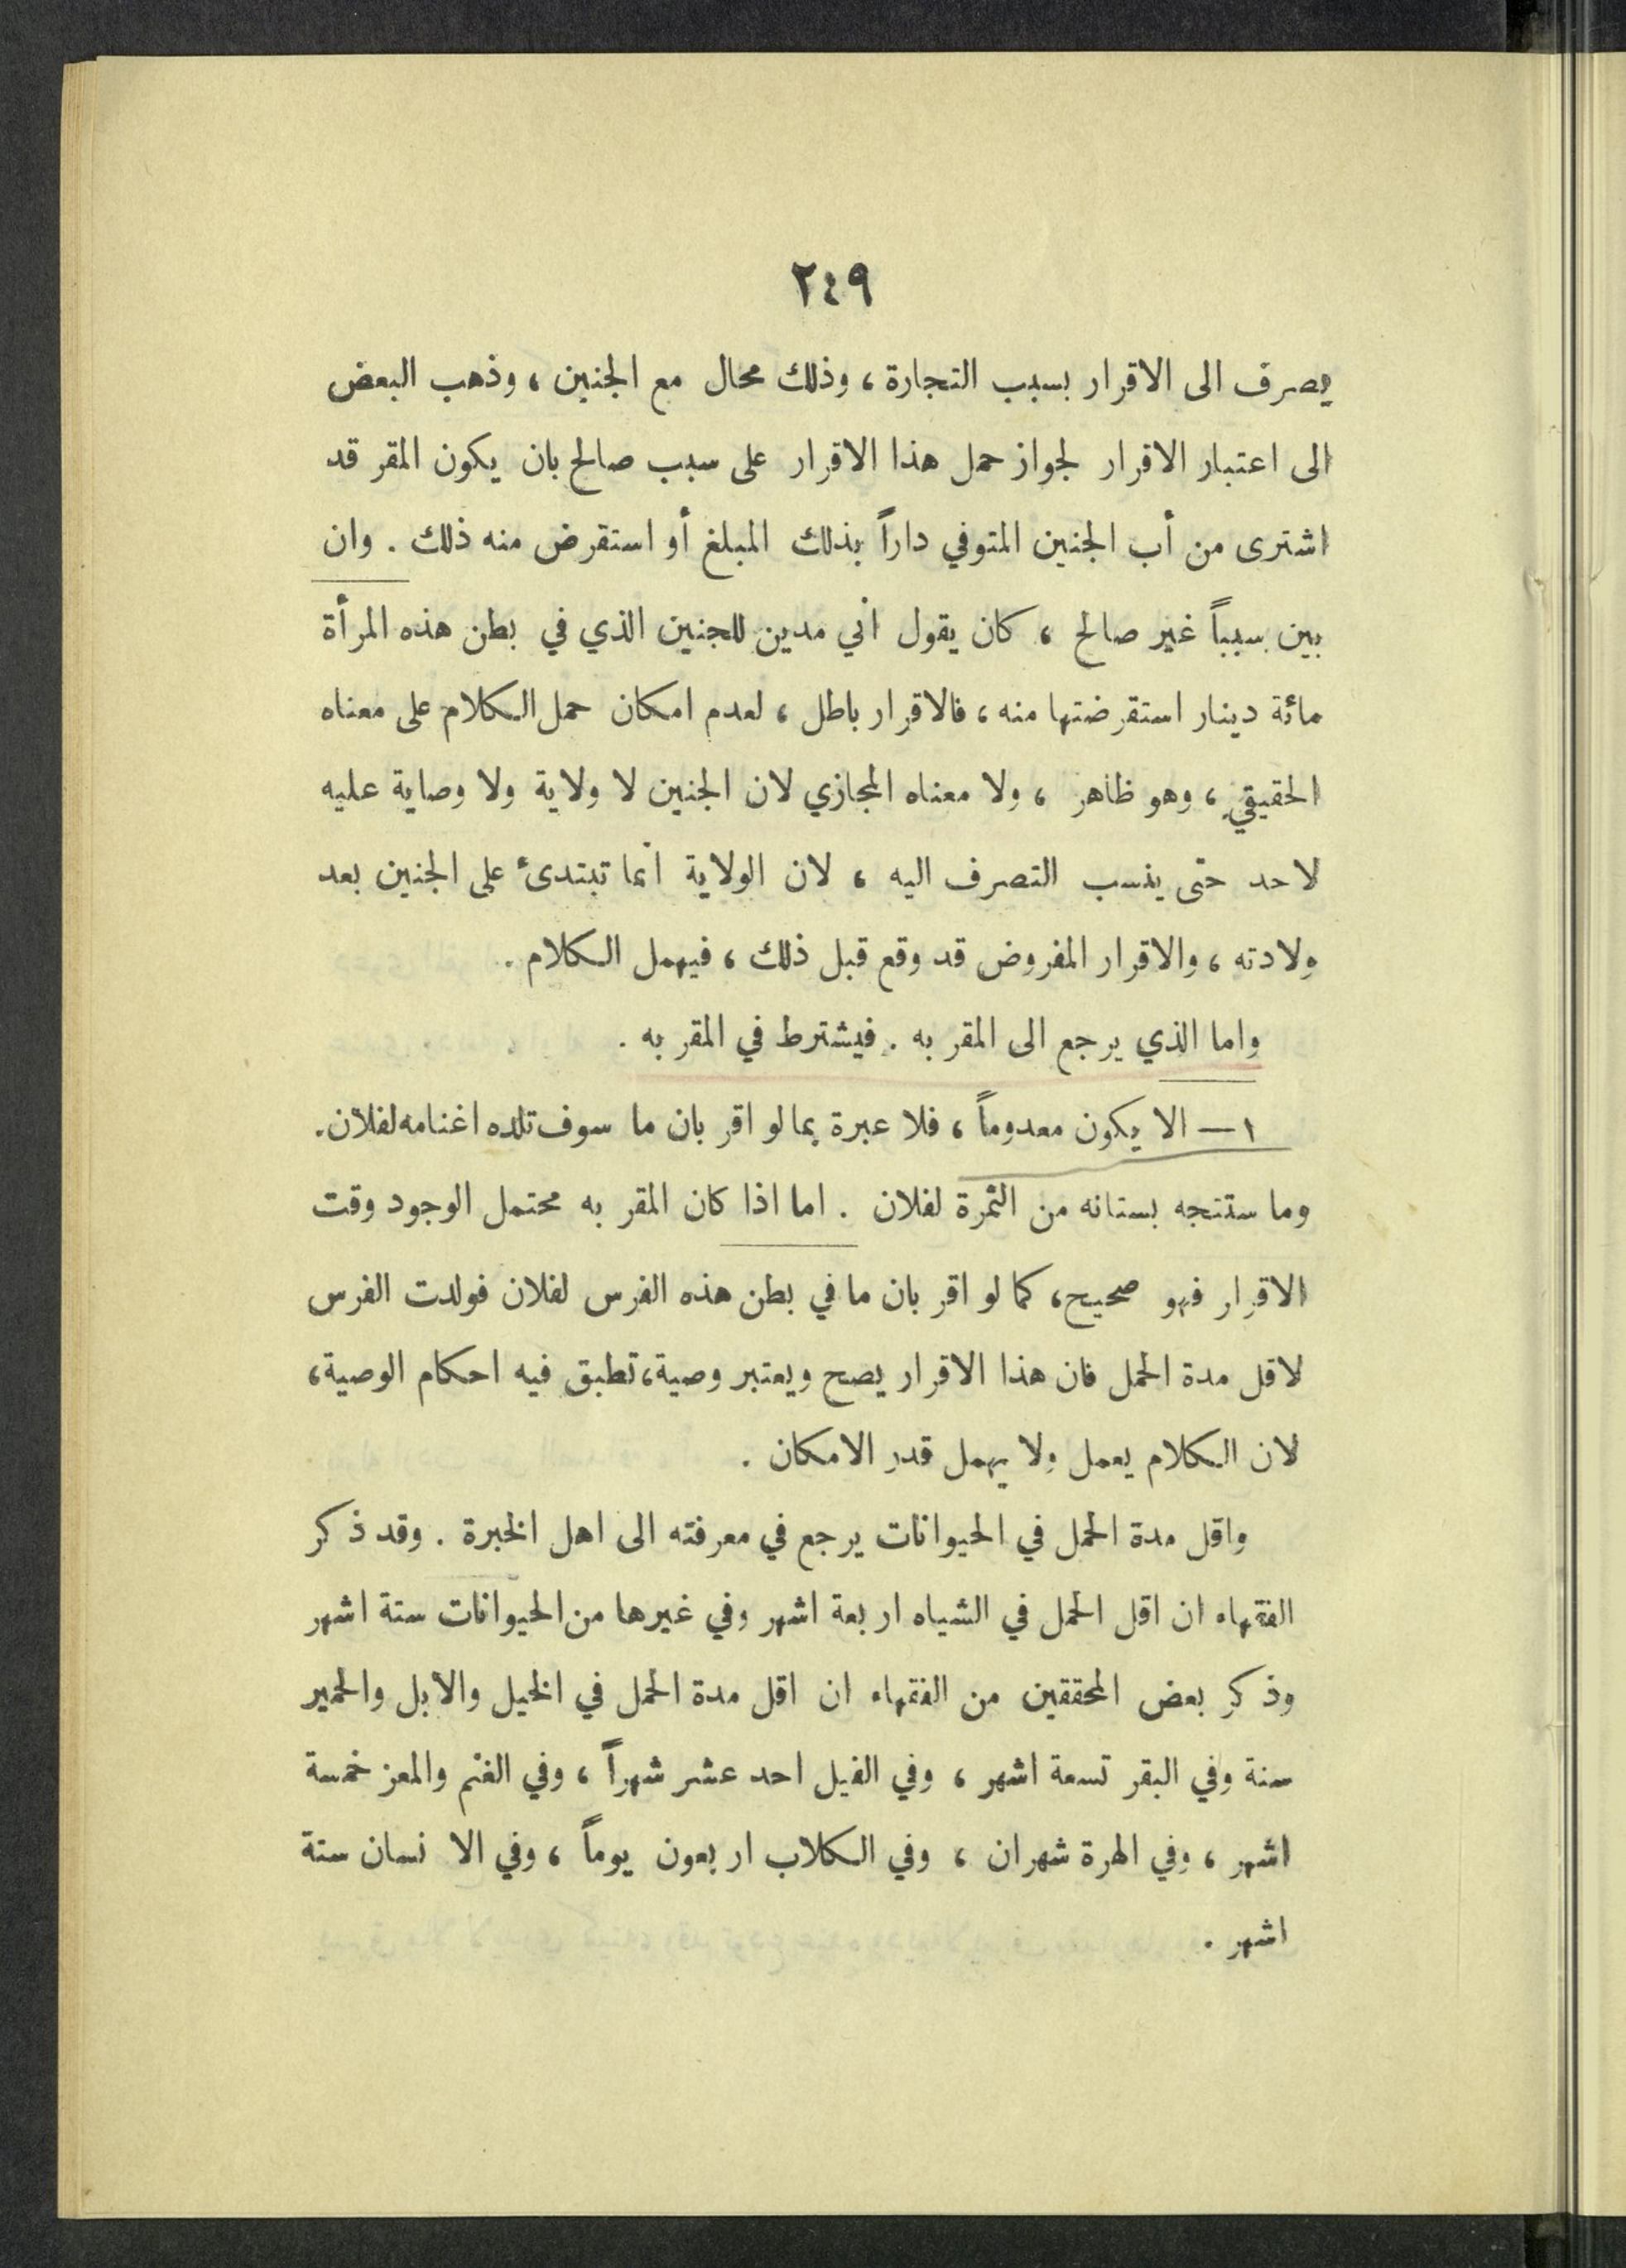 ٢٤٩
يصرف الى الاقرار بسبب التجارة ، وذلك محال مع الجنين ، وذهب البعض
الى اعتبار الاقرار لجواز حمل هذا الاقرار على سبب صالح بان يكون المقر قد
اشترى من أب الجنين المتوفي داراً بذلك المبلغ أو استقرض منه ذلك . وان
بين سبباً غير صالح ، كان يقول اني مدين للجنين الذي في بطن هذه المرأة
مائة دينار استقرضتها منه ، فالاقرار باطل ، لعدم امكان حمل الكلام على معناه
الحقيقي ، وهو ظاهر ، ولا معناه المجازي لان الجنين لا ولاية ولا وصاية عليه
لاحد حتى ينسب التصرف اليه ، لان الولاية انما تبتدئ على الجنين بعد
ولادته ، والاقرار المفروض قد وقع قبل ذلك ، فيهمل الكلام .
واما الذي يرجع الى المقر به . فيشترط في المقر به .
١ — الا يكون معدوماً ، فلا عبرة بما لو اقر بان ما سوف تلده اغنامه لفلان .
وما ستنتجه بستانه من الثمرة لفلان . اما اذا كان المقر به محتمل الوجود وقت
الاقرار فهو صحيح ، كما لو اقر بان ما في بطن هذه الفرس لفلان فولدت الفرس
لاقل مدة الحمل فان هذا الاقرار يصح ويعتبر وصية ، تطبق فيه احكام الوصية ،
لان الكلام يعمل ولا يهمل قدر الامكان .
واقل مدة الحمل في الحيوانات يرجع في معرفته الى اهل الخبرة . وقد ذكر
الفقهاء ان اقل الحمل في الشياه اربعة اشهر وفي غيرها من الحيوانات ستة اشهر
وذكر بعض المحققين من الفقهاء ان اقل مدة الحمل في الخيل والابل والحمير
سنة وفي البقر تسعة اشهر ، وفي الفيل احد عشر شهراً ، وفي الغنم والمعز خمسة
اشهر ، وفي الهرة شهران ، وفي الكلاب اربعون يوماً ، وفي الانسان ستة
اشهر .